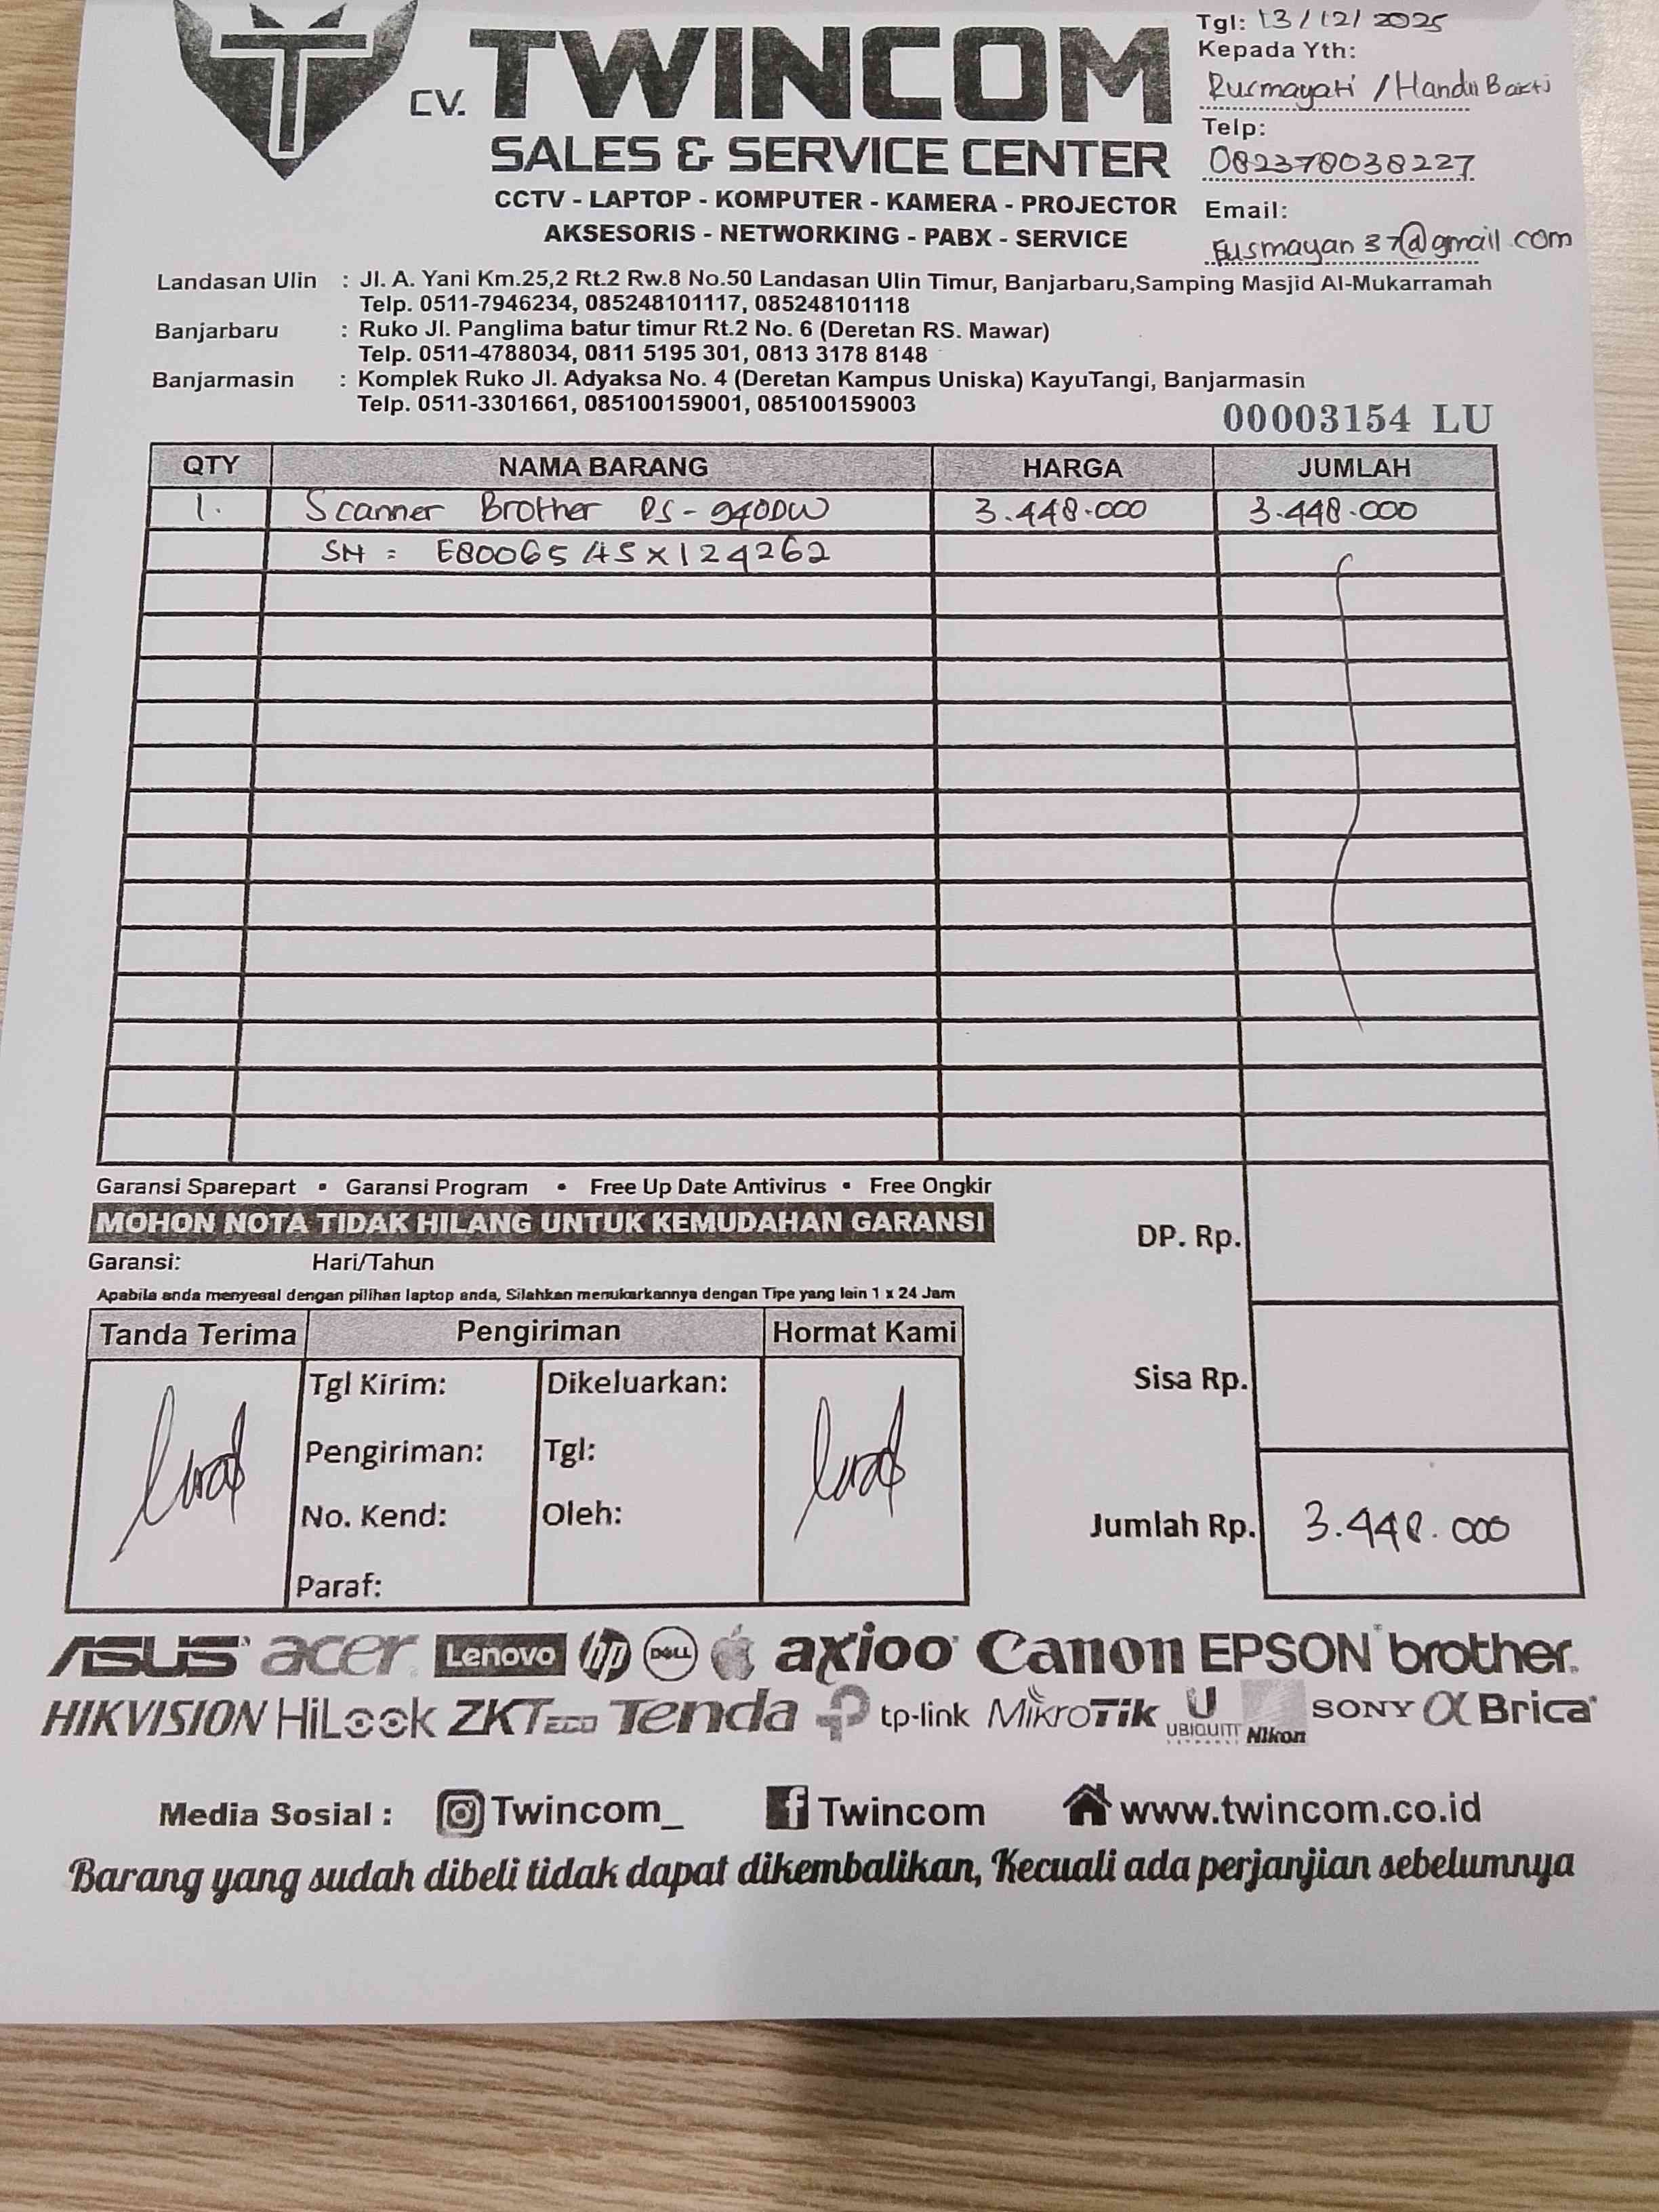 CV. TWINCOM
SALES & SERVICE CENTER
CCTV - LAPTOP - KOMPUTER - KAMERA - PROJECTOR
AKSESORIS - NETWORKING - PABX - SERVICE
Tgl: 13/12/2025
Kepada Yth:
Rusmayati / Handil Bakti
Telp:
082378038227
Email:
37@gmail.com
Landasan Ulin : Jl. A. Yani Km.25,2 Rt.2 Rw.8 No.50 Landasan Ulin Timur, Banjarbaru,Samping Masjid Al-Mukarramah
Telp. 0511-7946234, 085248101117, 085248101118
Banjarbaru : Ruko Jl. Panglima batur timur Rt.2 No. 6 (Deretan RS. Mawar)
Telp. 0511-4788034, 0811 5195 301, 0813 3178 8148
Banjarmasin : Komplek Ruko Jl. Adyaksa No. 4 (Deretan Kampus Uniska) KayuTangi, Banjarmasin
Telp. 0511-3301661, 085100159001, 085100159003
00003154 LU
QTY NAMA BARANG HARGA JUMLAH
1. Scanner Brother DS-940DW 3.448.000 3.448.000
SN =
Garansi Sparepart • Garansi Program • Free Up Date Antivirus • Free Ongkir
MOHON NOTA TIDAK HILANG UNTUK KEMUDAHAN GARANSI
Garansi: Hari/Tahun
Apabila anda menyesal dengan pilihan laptop anda, Silahkan menukarkannya dengan Tipe yang lain 1 x 24 Jam
DP. Rp.
Sisa Rp.
Jumlah Rp. 3.448.000
Tanda Terima Pengiriman Hormat Kami
Tgl Kirim: Dikeluarkan:
Pengiriman: Tgl:
No. Kend: Oleh:
Paraf:
ASUS acer Lenovo hp DELL axioo Canon EPSON brother
HIKVISION HiLook ZKTeco Tenda tp-link MikroTik UBIQUITI NETWORKS Nikon SONY α Brica
Media Sosial : Twincom_ Twincom www.twincom.co.id
Barang yang sudah dibeli tidak dapat dikembalikan, Kecuali ada perjanjian sebelumnya